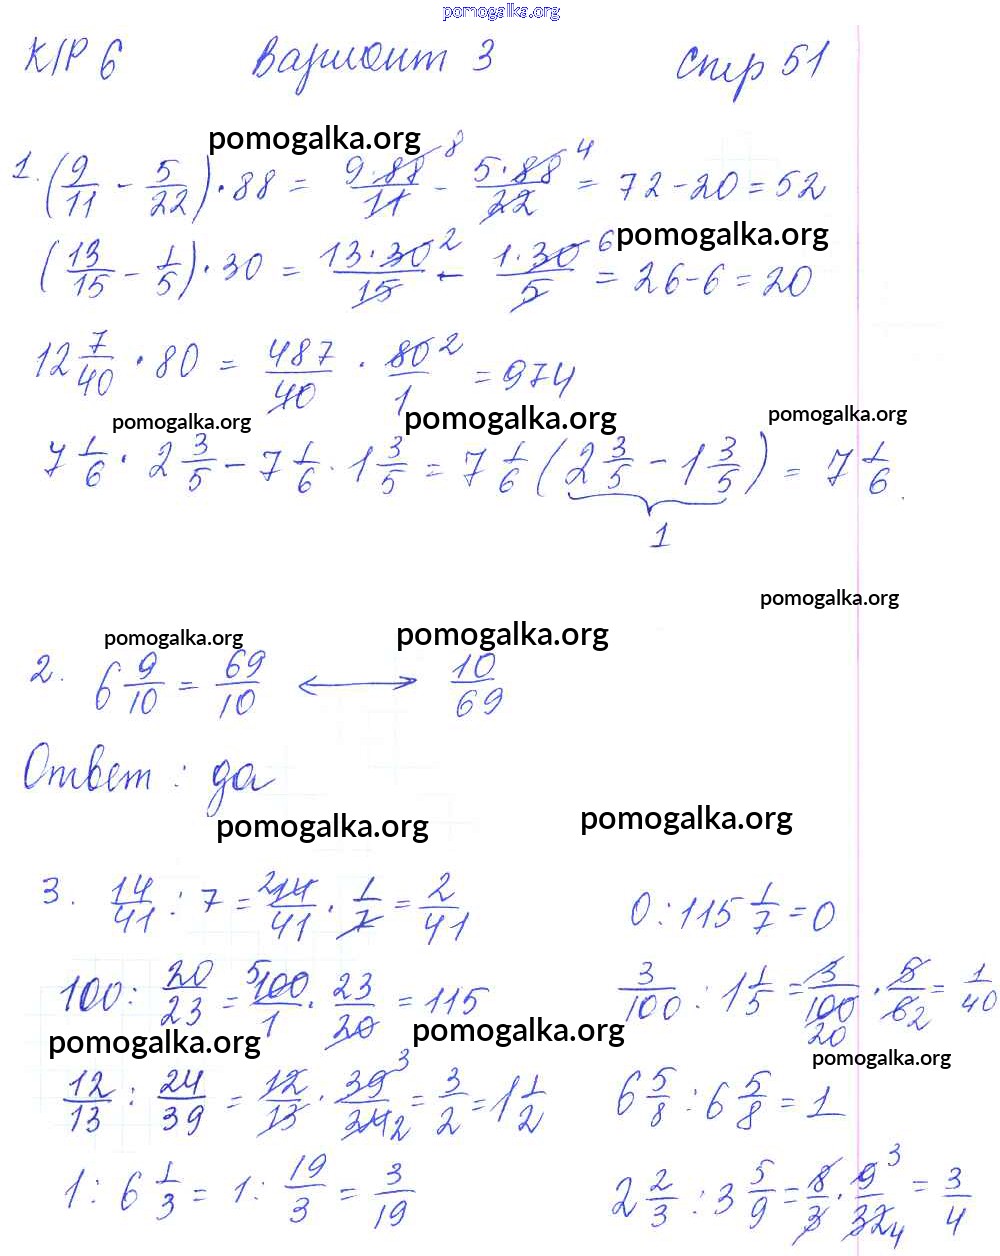 pomogalka.org
К/Р 6 Вариант 3 Стр 51
pomogalka.org
1. (9/11 - 5/22) · 88 = 9·88 8/11 - 5·88 4/22 = 72 - 20 = 52
pomogalka.org
(13/15 - 1/5) · 30 = 13·30 2/15 - 1·30 6/5 = 26 - 6 = 20
12 7/40 · 80 = 487/40 · 80 2/1 = 974
pomogalka.org pomogalka.org pomogalka.org
7 1/6 · 2 3/5 - 7 1/6 · 1 3/5 = 7 1/6 (2 3/5 - 1 3/5) = 7 1/6.
1
pomogalka.org
pomogalka.org pomogalka.org
2. 6 9/10 = 69/10 ⟷ 10/69
Ответ: да
pomogalka.org pomogalka.org
3. 14/41 : 7 = 2 14/41 · 1/7 = 2/41 0 : 115 1/7 = 0
100 : 20/23 = 5 100/1 · 23/20 = 115 3/100 : 1 1/5 = 3/100 20 · 5/6 2 = 1/40
pomogalka.org pomogalka.org pomogalka.org
12/13 : 24/39 = 12/13 · 39 3/24 2 = 3/2 = 1 1/2 6 5/8 : 6 5/8 = 1
1 : 6 1/3 = 1 : 19/3 = 3/19 2 2/3 : 3 5/9 = 8/3 · 9 3/32 4 = 3/4